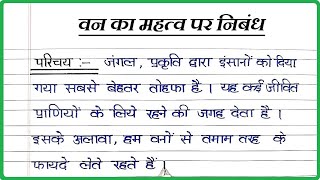 वन का महत्व पर निबंध
परिचय :- जंगल, प्रकृति द्वारा इंसानों को दिया
गया सबसे बेहतर तोहफा है। यह कई जीवित
प्राणियों के लिये रहने की जगह देता है।
इसके अलावा, हम वनों से तमाम तरह के
फायदे लेते रहते हैं।